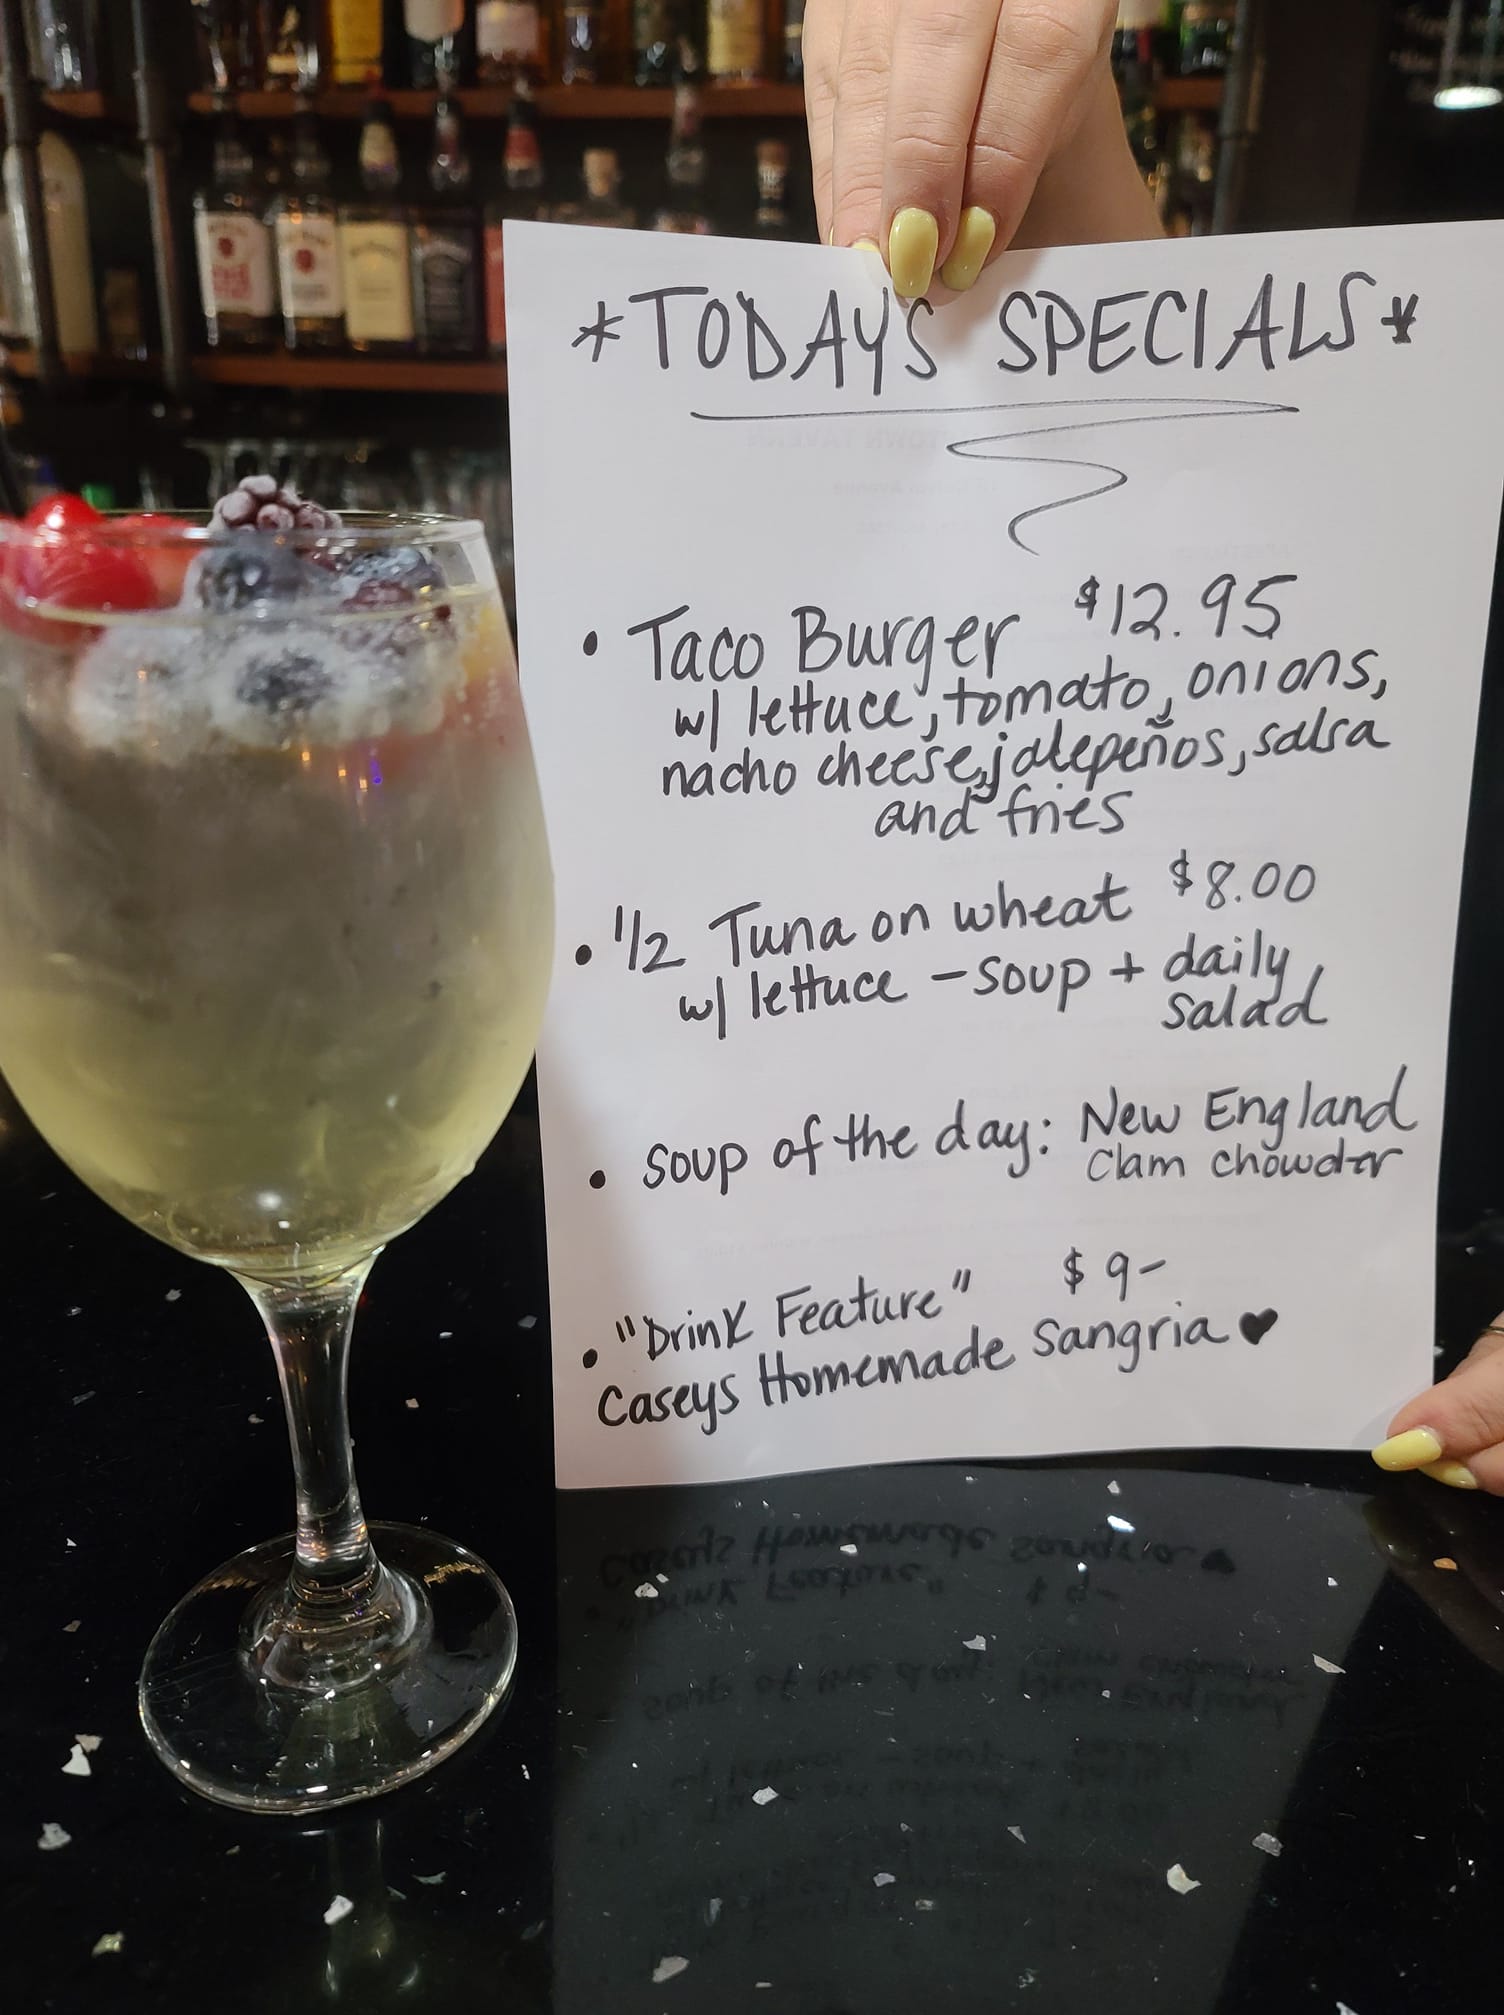 *TODAYS SPECIALS*
• Taco Burger $12.95
w/ lettuce, tomato, onions,
nacho cheese, jalepeños, salsa
and fries
• 1/2 Tuna on wheat $8.00
w/ lettuce - soup + daily
salad
• soup of the day: New England
Clam Chowder
• "Drink Feature" $9-
Caseys Homemade Sangria ♥